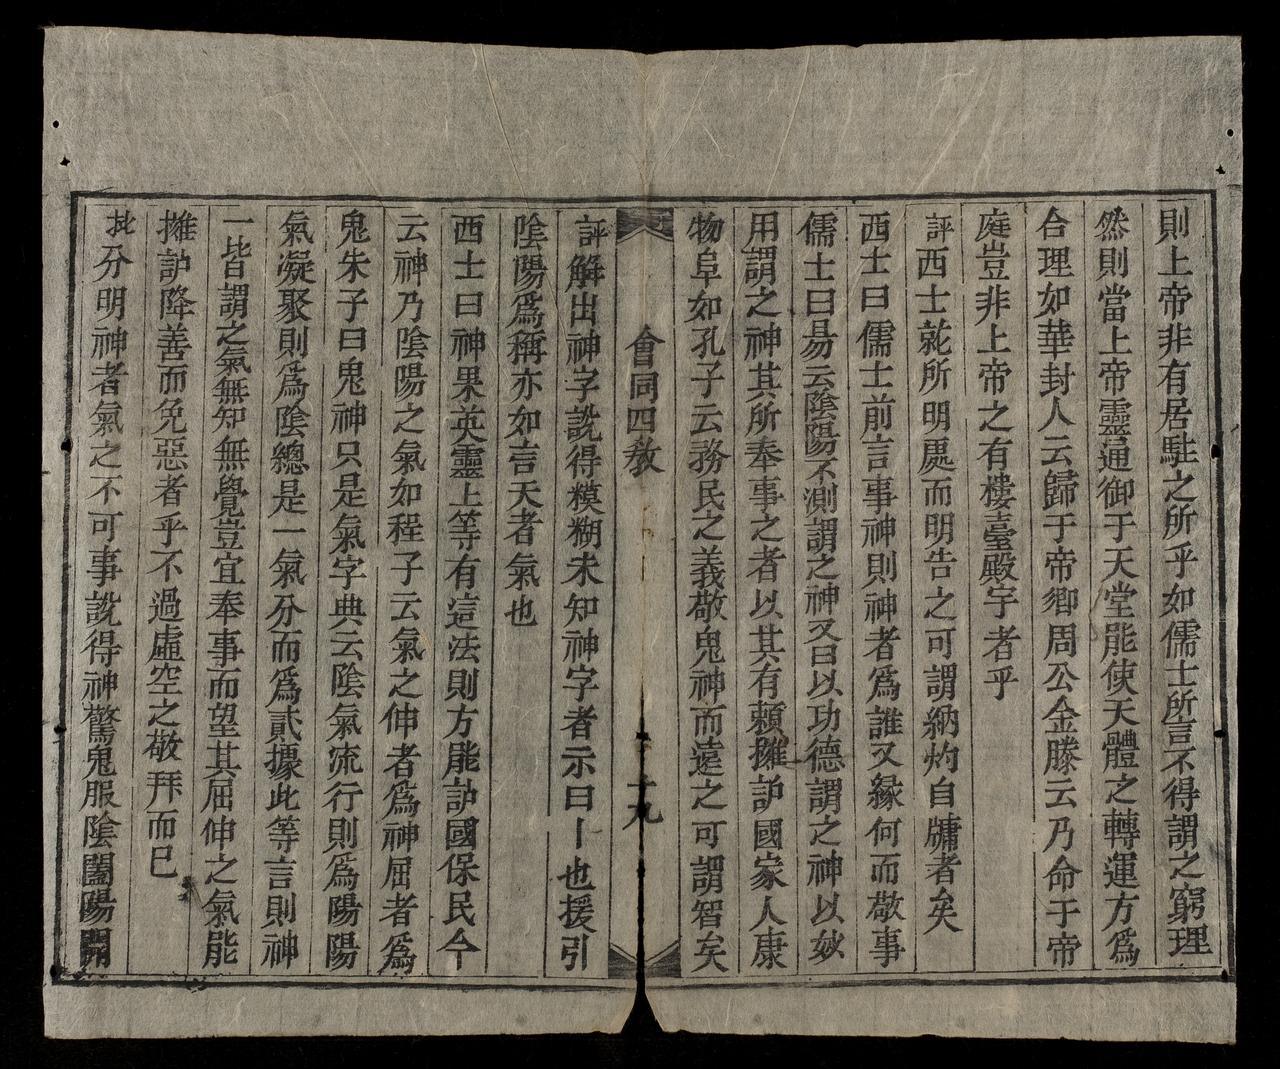 則上帝非有居駐之所乎如儒士所言不得謂之窮理
然則當上帝靈通御于天堂能使天體之轉運方爲
合理如華封人云歸于帝鄉周公金縢云乃命于帝
庭豈非上帝之有樓臺殿宇者乎
評西士就所明處而明告之可謂納灼自牗者矣
西士曰儒士前言事神則神者爲誰又緣何而敬事
儒士曰易云陰陽不測謂之神又曰以功德謂之神以妙
用謂之神其所奉事之者以其有賴擁護國家人康
物阜如孔子云務民之義敬鬼神而遠之可謂智矣
會同四教
十九
評解出神字說得糢糊未知神字者示曰丨也援引
陰陽爲稱亦如言天者氣也
西士曰神果英靈上等有這法則方能護國保民今
云神乃陰陽之氣如程子云氣之伸者爲神屈者爲
鬼朱子曰鬼神只是氣字典云陰氣流行則爲陽陽
氣凝聚則爲陰總是一氣分而爲貳據此等言則神
一皆謂之氣無知無覺豈宜奉事而望其屈伸之氣能
擁護降善而免惡者乎不過虛空之敬拜而已
批分明神者氣之不可事說得神驚鬼服陰闔陽開